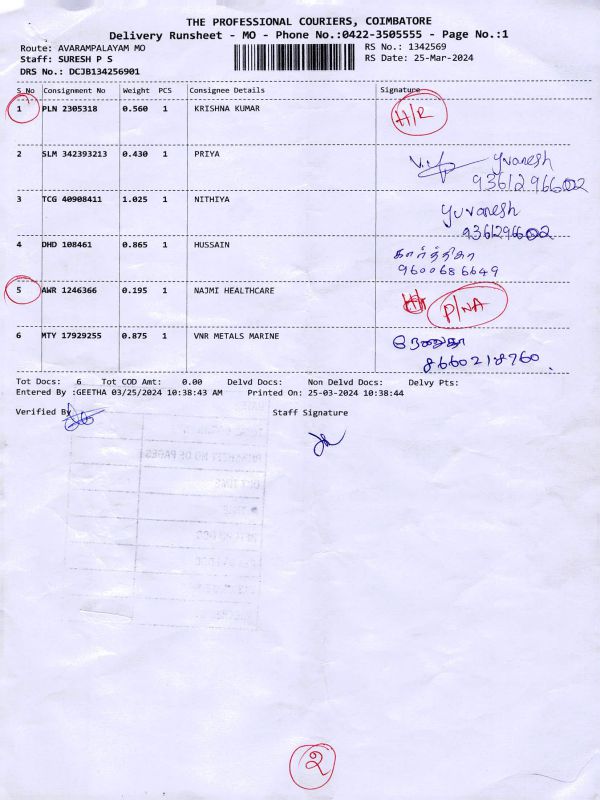 THE PROFESSIONAL COURIERS, COIMBATORE
Delivery Runsheet - MO - Phone No.:0422-3505555 - Page No.:1
Route: AVARAMPALAYAM MO RS No.: 1342569
Staff: SURESH P S RS Date: 25-Mar-2024
DRS No.: DCJB134256901
S No Consignment No Weight PCS Consignee Details Signature
1 PLN 2305318 0.560 1 KRISHNA KUMAR H/R
2 SLM 342393213 0.430 1 PRIYA Yvanesh
3 TCG 40908411 1.025 1 NITHIYA Yuvanesh
4 DHD 108461 0.865 1 HUSSAIN கார்த்திகா
9600686649
5 AWR 1246366 0.195 1 NAJMI HEALTHCARE P/NA
6 MTY 17929255 0.875 1 VNR METALS MARINE
8660218760
Tot Docs: 6 Tot COD Amt: 0.00 Delvd Docs: Non Delvd Docs: Delvy Pts:
Entered By :GEETHA 03/25/2024 10:38:43 AM Printed On: 25-03-2024 10:38:44
Verified By Staff Signature
2